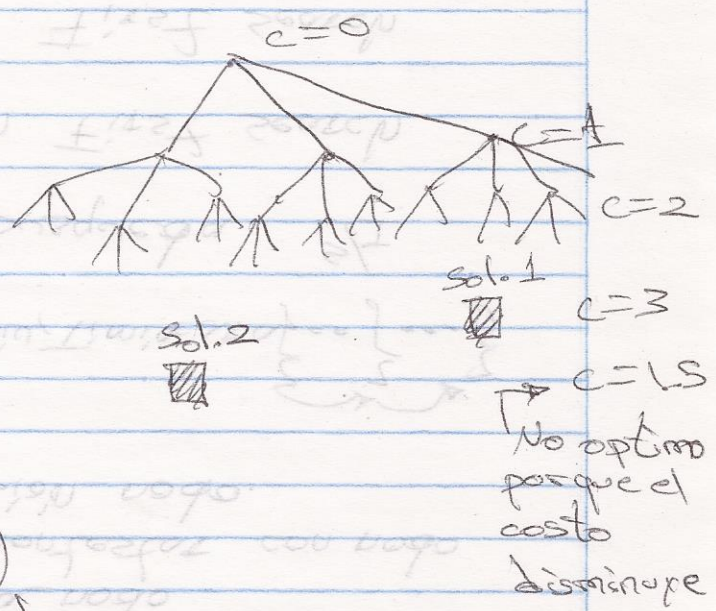 c=0
c=1
c=2
sol. 1
c=3
sol. 2
c=1.5
No optimo
porque el
costo
disminuye